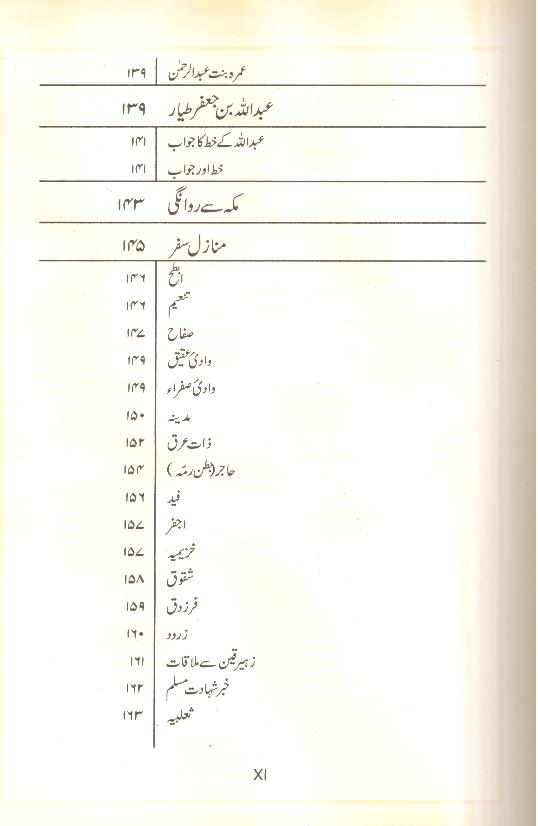 عمرہ بنت عبدالرحمٰن ۱۳۹
عبداللہ بن جعفر طیار ۱۳۹
عبداللہ کے خط کا جواب ۱۴۱
خط اور جواب ۱۴۱
مکہ سے روانگی ۱۴۳
منازل سفر ۱۴۵
ابطح ۱۴۶
تنعیم ۱۴۶
صفاح ۱۴۷
وادیٔ عقیق ۱۴۹
وادیٔ صفراء ۱۴۹
مدینہ ۱۵۰
ذات عرق ۱۵۲
حاجر (بطن رمّہ) ۱۵۴
فید ۱۵۶
اجفر ۱۵۷
خزیمیہ ۱۵۷
شقوق ۱۵۸
فرزدق ۱۵۹
زرود ۱۶۰
زہیر قین سے ملاقات ۱۶۱
خبر شہادت مسلم ۱۶۲
ثعلبیہ ۱۶۳
XI